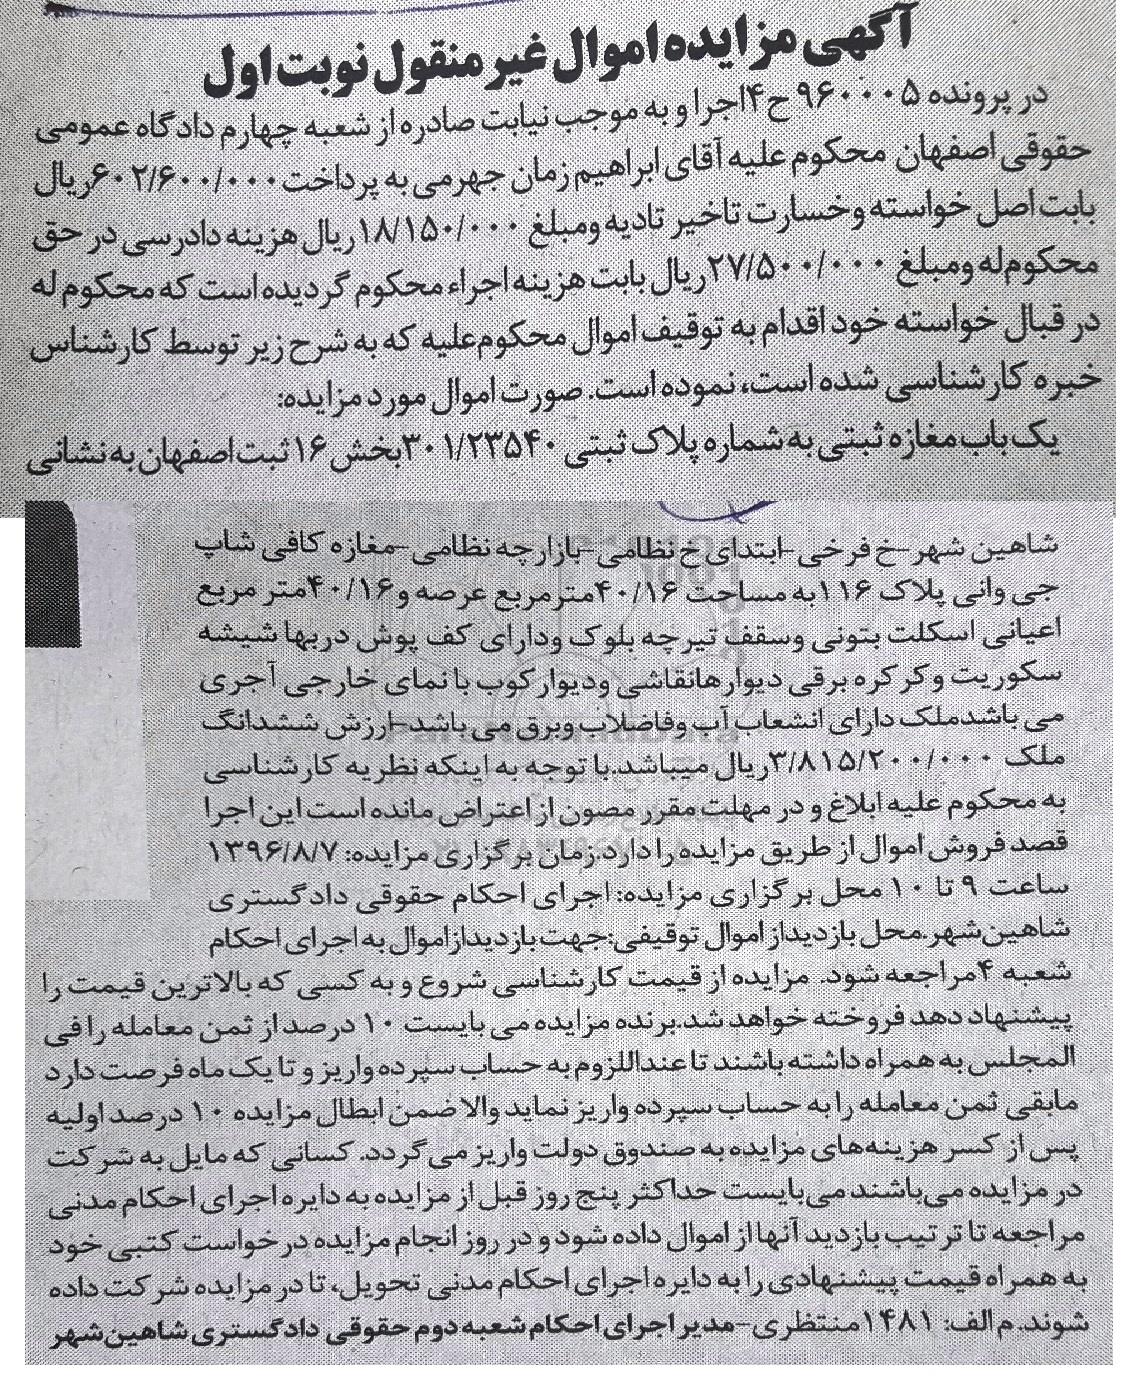 آگهی مزایده اموال غیر منقول نوبت اول
در پرونده ۹۶۰۰۰۵ ح۴اجرا و به موجب نیابت صادره از شعبه چهارم دادگاه عمومی
حقوقی اصفهان محکوم علیه آقای ابراهیم زمان جهرمی به پرداخت ۶۰۲/۶۰۰/۰۰۰ریال
بابت اصل خواسته وخسارت تاخیر تادیه ومبلغ ۱۸/۱۵۰/۰۰۰ریال هزینه دادرسی در حق
محکوم‌له ومبلغ ۲۷/۵۰۰/۰۰۰ریال بابت هزینه اجراء محکوم گردیده است که محکوم له
در قبال خواسته خود اقدام به توقیف اموال محکوم‌علیه که به شرح زیر توسط کارشناس
خبره کارشناسی شده است، نموده است. صورت اموال مورد مزایده:
یک باب مغازه ثبتی به شماره پلاک ثبتی ۳۰۱/۲۳۵۴۰بخش ۱۶ ثبت اصفهان به نشانی
شاهین شهر-خ فرخی-ابتدای خ نظامی-بازارچه نظامی-مغازه کافی شاپ
جی وانی پلاک ۱۱۶به مساحت ۴۰/۱۶مترمربع عرصه و۴۰/۱۶متر مربع
اعیانی اسکلت بتونی وسقف تیرچه بلوک ودارای کف پوش دربها شیشه
سکوریت وکرکره برقی دیوارهانقاشی ودیوارکوب با نمای خارجی آجری
می باشدملک دارای انشعاب آب وفاضلاب وبرق می باشد-ارزش ششدانگ
ملک ۳/۸۱۵/۲۰۰/۰۰۰ریال میباشد.با توجه به اینکه نظریه کارشناسی
به محکوم علیه ابلاغ و در مهلت مقرر مصون از اعتراض مانده است این اجرا
قصد فروش اموال از طریق مزایده را دارد.زمان برگزاری مزایده: ۱۳۹۶/۸/۷
ساعت ۹ تا ۱۰ محل برگزاری مزایده: اجرای احکام حقوقی دادگستری
شاهین‌شهر.محل بازدیداز اموال توقیفی:جهت بازدیدازاموال به اجرای احکام
شعبه ۴مراجعه شود. مزایده از قیمت کارشناسی شروع و به کسی که بالاترین قیمت را
پیشنهاد دهد فروخته خواهد شد.برنده مزایده می بایست ۱۰ درصد از ثمن معامله را فی
المجلس به همراه داشته باشند تا عنداللزوم به حساب سپرده واریز و تا یک ماه فرصت دارد
مابقی ثمن معامله را به حساب سپرده واریز نماید والا ضمن ابطال مزایده ۱۰ درصد اولیه
پس از کسر هزینه‌های مزایده به صندوق دولت واریز می گردد. کسانی که مایل به شرکت
در مزایده می‌باشند می‌بایست حداکثر پنج روز قبل از مزایده به دایره اجرای احکام مدنی
مراجعه تا ترتیب بازدید آنها از اموال داده شود و در روز انجام مزایده درخواست کتبی خود
به همراه قیمت پیشنهادی را به دایره اجرای احکام مدنی تحویل، تا در مزایده شرکت داده
شوند. م الف: ۱۴۸۱ منتظری-مدیر اجرای احکام شعبه دوم حقوقی دادگستری شاهین‌شهر